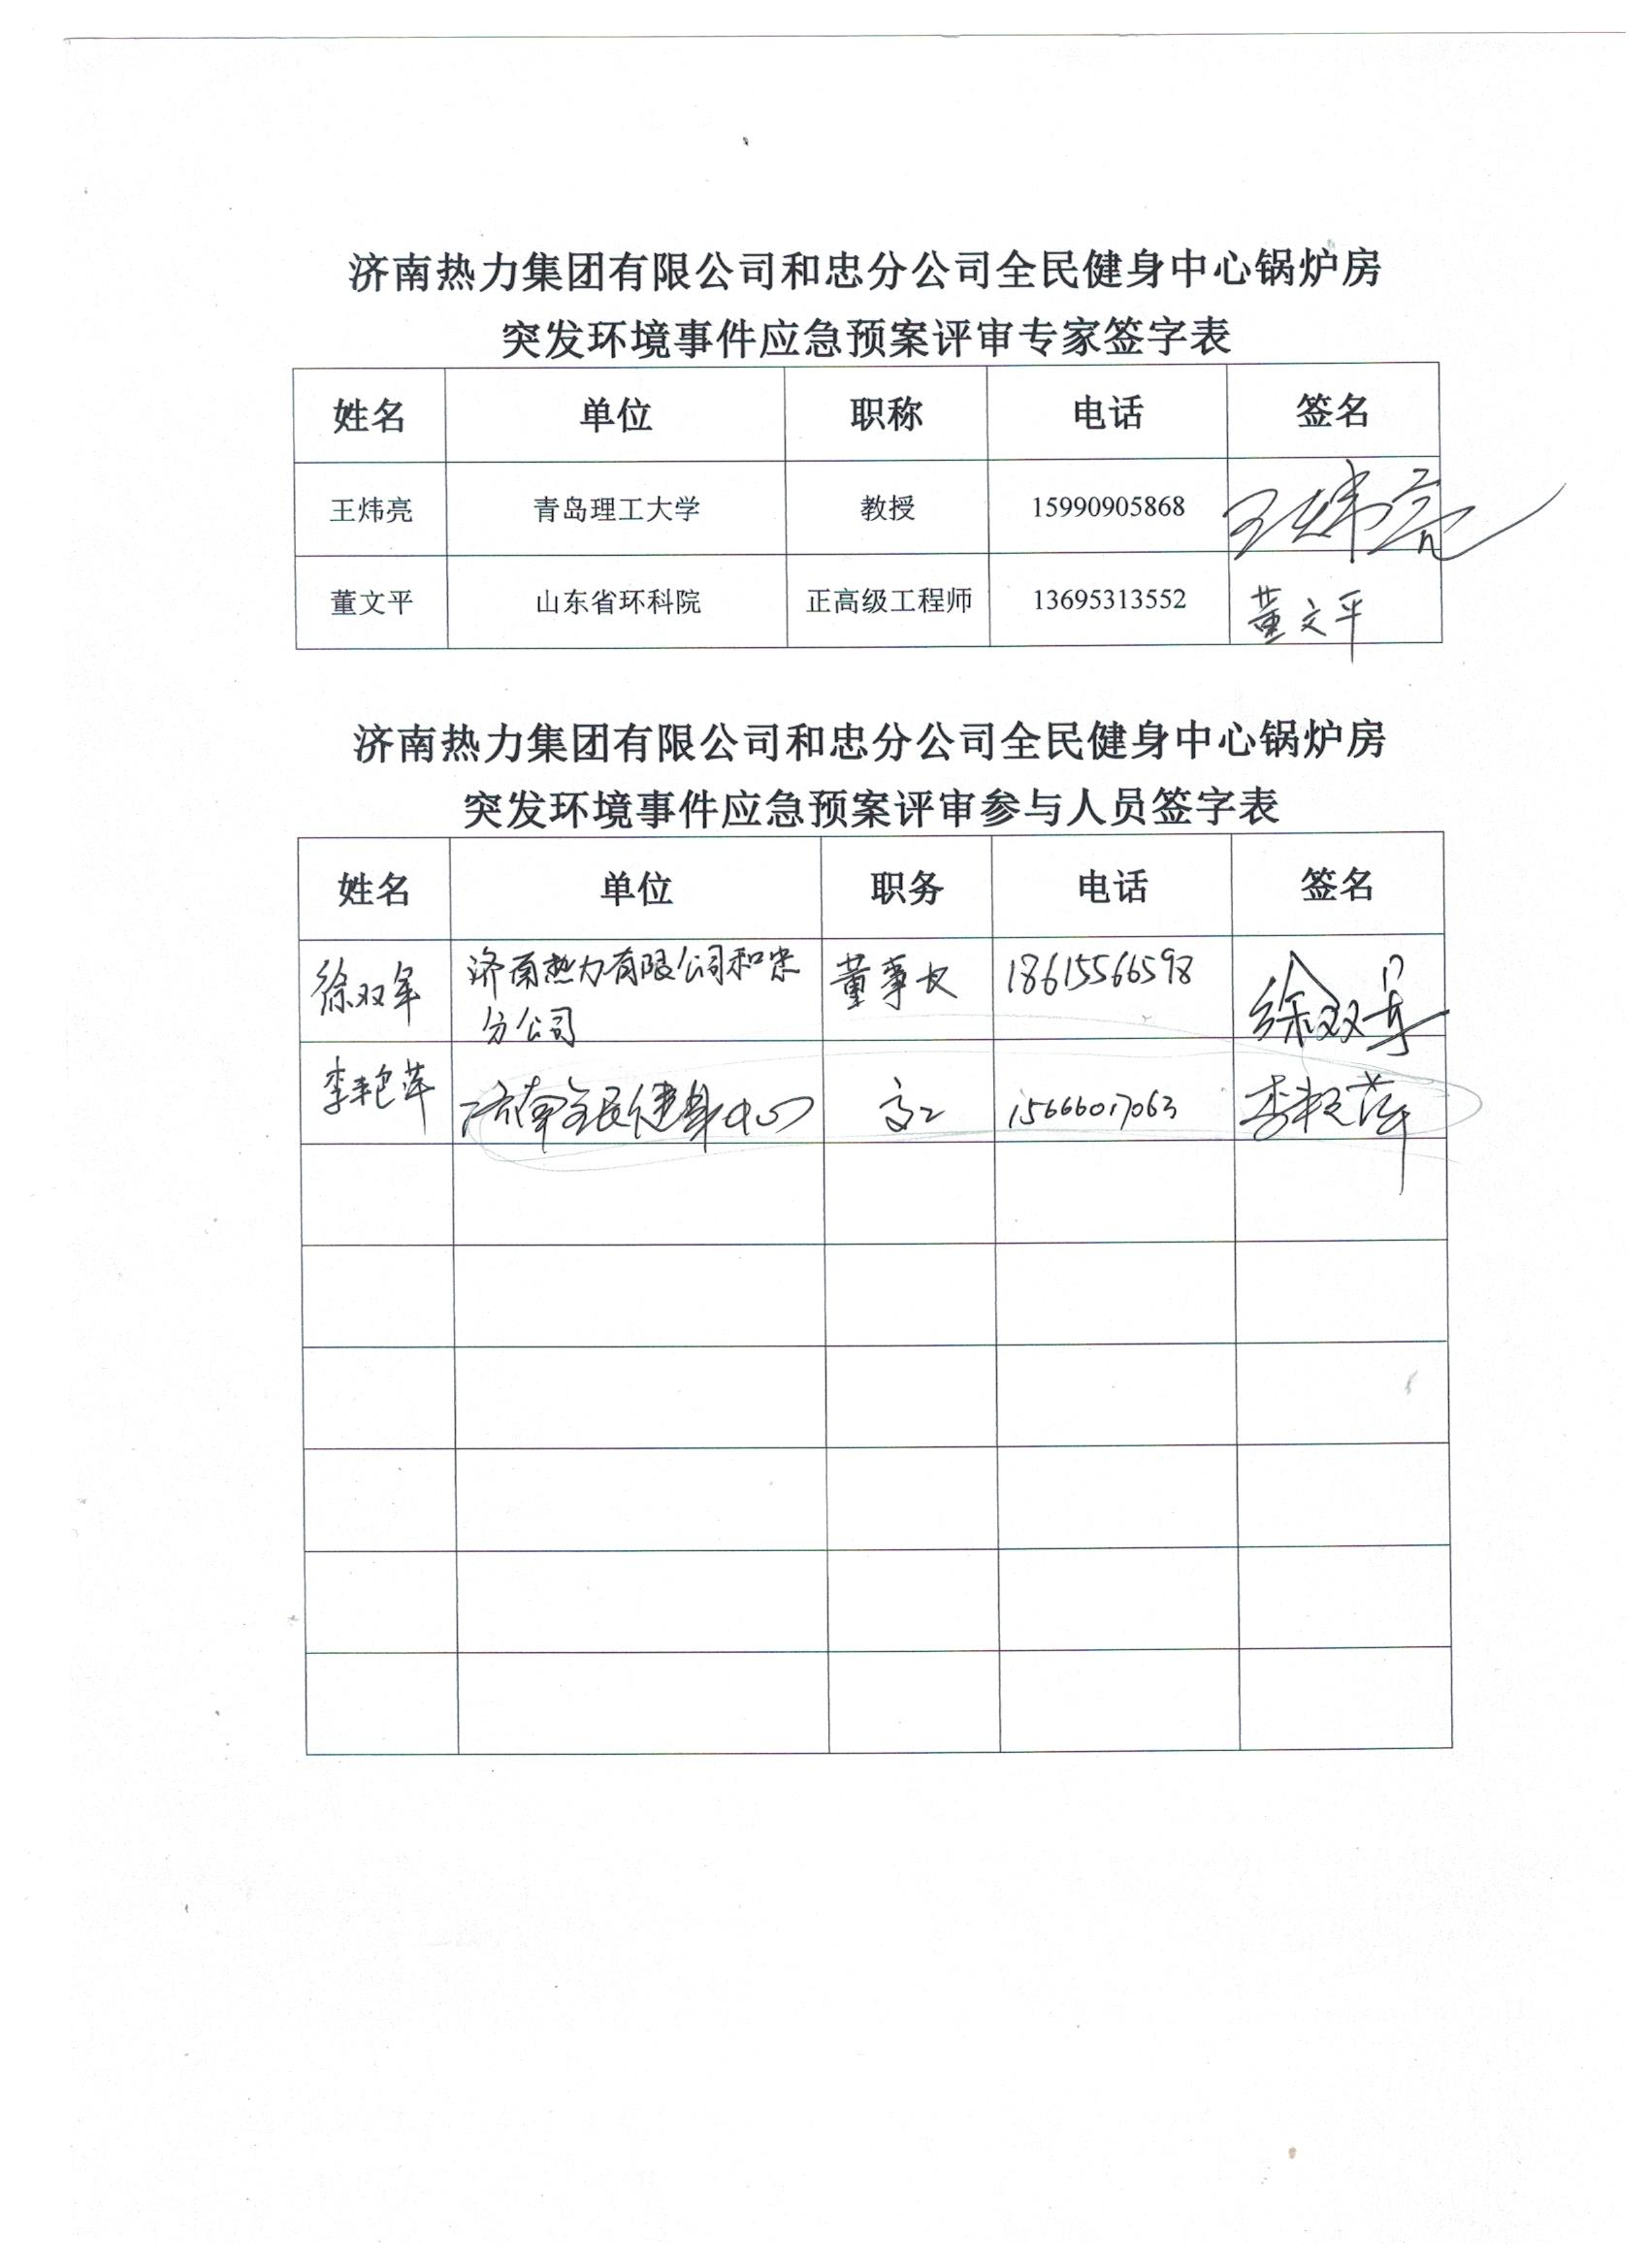 济南热力集团有限公司和忠分公司全民健身中心锅炉房
突发环境事件应急预案评审专家签字表
姓名 单位 职称 电话 签名
王炜亮 青岛理工大学 教授 15990905868 王炜亮
董文平 山东省环科院 正高级工程师 13695313552 董文平
济南热力集团有限公司和忠分公司全民健身中心锅炉房
突发环境事件应急预案评审参与人员签字表
姓名 单位 职务 电话 签名
徐双军 济南热力有限公司和忠 董事长 18615566598 徐双军
分公司
李艳萍 济南全民健身中心 高工 15666017063 李艳萍